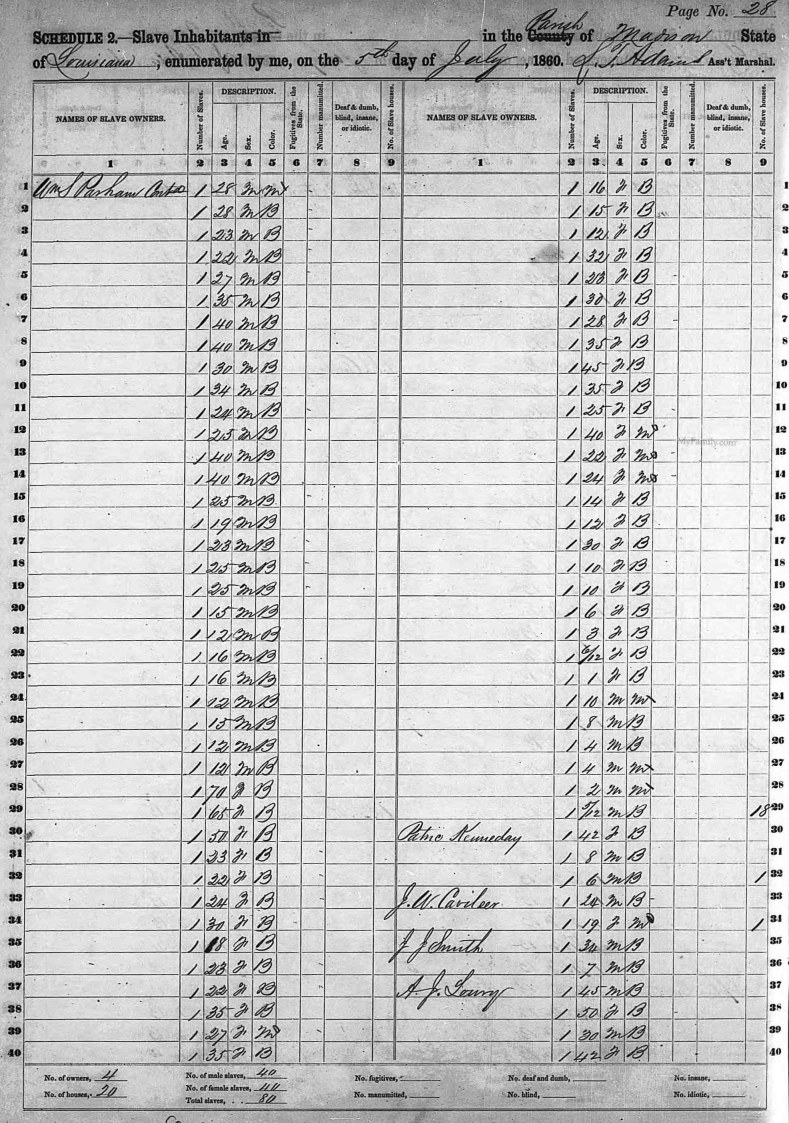 Page No. 28
SCHEDULE 2.—Slave Inhabitants in in the County Parish of Madison State
of Louisiana, enumerated by me, on the 5th day of July, 1860. Adams Ass't Marshal.
NAMES OF SLAVE OWNERS. Number of Slaves. DESCRIPTION. Age. Sex. Color. Fugitives from the State. Number manumitted. Deaf & dumb, blind, insane, or idiotic. No. of Slave houses. NAMES OF SLAVE OWNERS. Number of Slaves. DESCRIPTION. Age. Sex. Color. Fugitives from the State. Number manumitted. Deaf & dumb, blind, insane, or idiotic. No. of Slave houses.
1 2 3 4 5 6 7 8 9 1 2 3 4 5 6 7 8 9
1 Wm S Parham 1 28 M 1 16 F B 1
2 1 28 M B 1 15 F B 2
3 1 23 M B 1 12 F B 3
4 1 22 M B 1 32 F B 4
5 1 27 M B 1 23 F B 5
6 1 35 M B 1 30 F B 6
7 1 40 M B 1 28 F B 7
8 1 40 M B 1 35 F B 8
9 1 30 M B 1 45 F B 9
10 1 34 M B 1 35 F B 10
11 1 24 M B 1 25 F B 11
12 1 25 M B 1 40 F M 12
MyFamily.com
13 1 40 M B 1 22 F M 13
14 1 40 M B 1 24 F M 14
15 1 25 M B 1 14 F B 15
16 1 19 M B 1 12 F B 16
17 1 23 M B 1 30 F B 17
18 1 25 M B 1 10 F B 18
19 1 25 M B 1 10 F B 19
20 1 15 M B 1 6 F B 20
21 1 12 M B 1 3 F B 21
22 1 16 M B 1 /12 F B 22
23 1 16 M B 1 1 F B 23
24 1 12 M B 1 10 M M 24
25 1 15 M B 1 8 M B 25
26 1 12 M B 1 4 M B 26
27 1 12 M B 1 4 M M 27
28 1 70 F B 1 2 M M 28
29 1 65 F B 1 /12 M B 18 29
30 1 50 F B Patric Kenneday 1 42 F B 30
31 1 23 F B 1 8 M B 31
32 1 22 F B 1 6 M B 1 32
33 1 24 F B J. W. Cavileer 1 24 M B 33
34 1 30 F B 1 19 F M 1 34
35 1 18 F B J J Smith 1 34 M B 35
36 1 23 F B 1 7 M B 36
37 1 22 F B A. J. Lowry 1 45 M B 37
38 1 35 F B 1 50 F B 38
39 1 27 F M 1 30 M B 39
40 1 35 F B 1 42 F B 40
No. of owners, 4 No. of male slaves, 40 No. fugitives, No. of deaf and dumb, No. insane,
No. of houses, 20 No. of female slaves, 40 No. manumitted, No. blind, No. idiotic,
Total slaves, 80